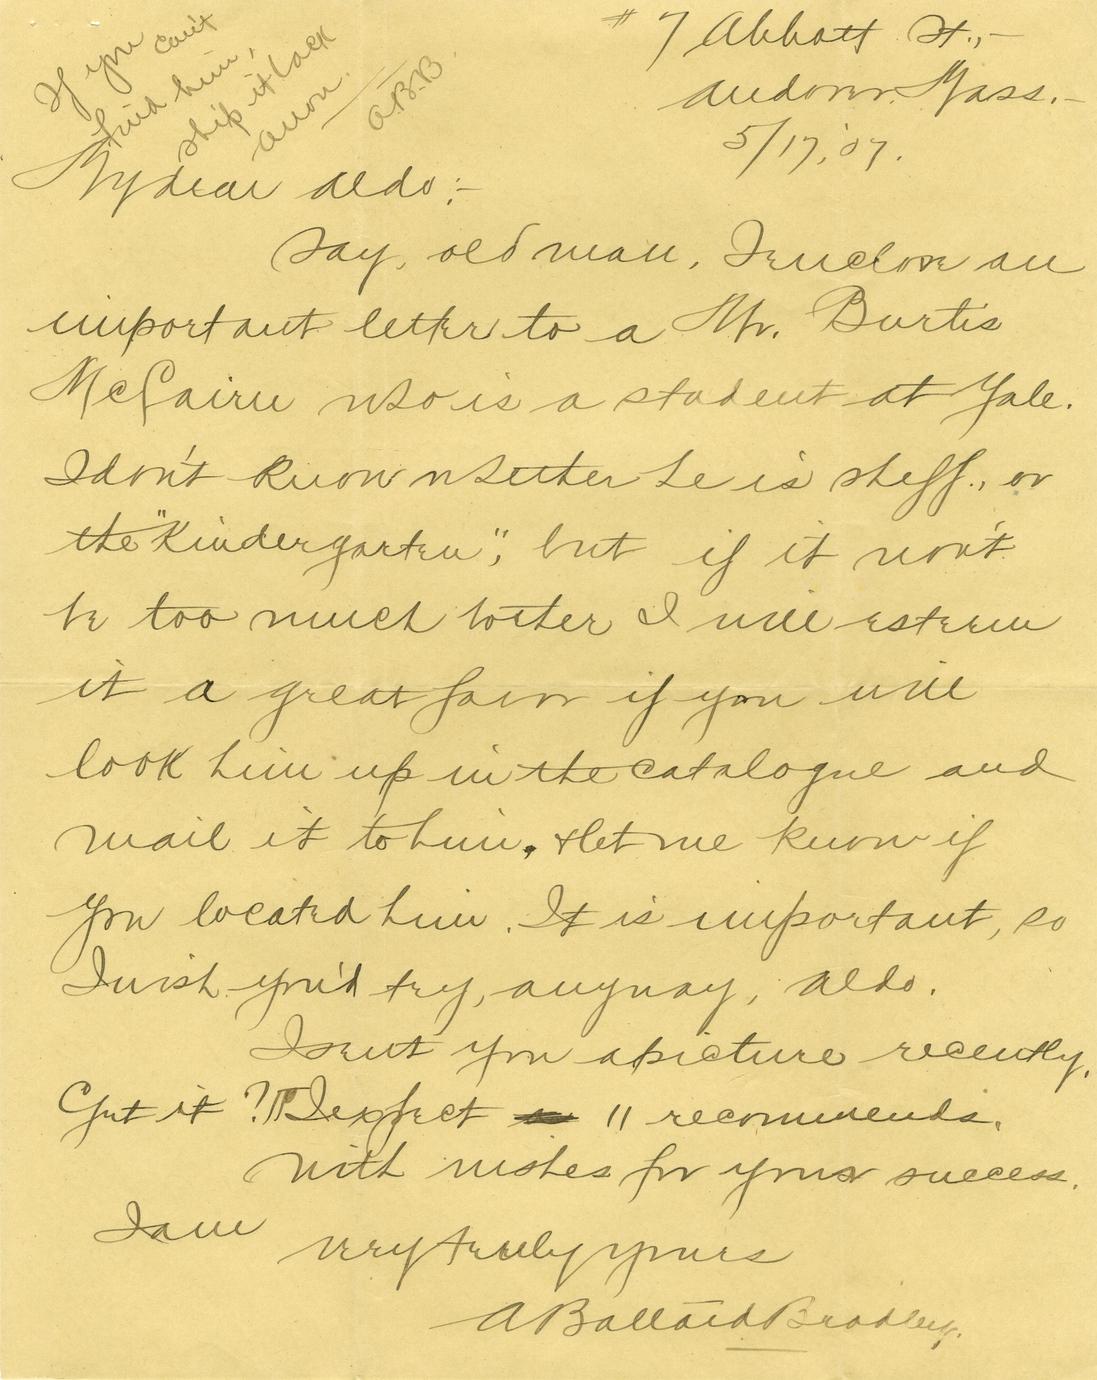 If you can't
find him,
ship it back
anon.
A.B.B.
# 7 Abbott St.,-
Andover. Mass.-
5/17,'07.
My dear Aldo:-
Say, old man, I enclose an
important letter to a Mr. Burtis
McCairn who is a student at Yale.
I don't know whether he is sheff., or
the "Kindergarten", but if it won't
be too much bother I will esteem
it a great favor if you will
look him up in the catalogue and
mail it to him. & let me know if
you located him. It is important, so
I wish you'd try, anyway, Aldo.
I sent you a picture recently.
Get it? ¶ I expect 11 recommends.
With wishes for your success.
I am
very truly yours
A Ballard Bradley.